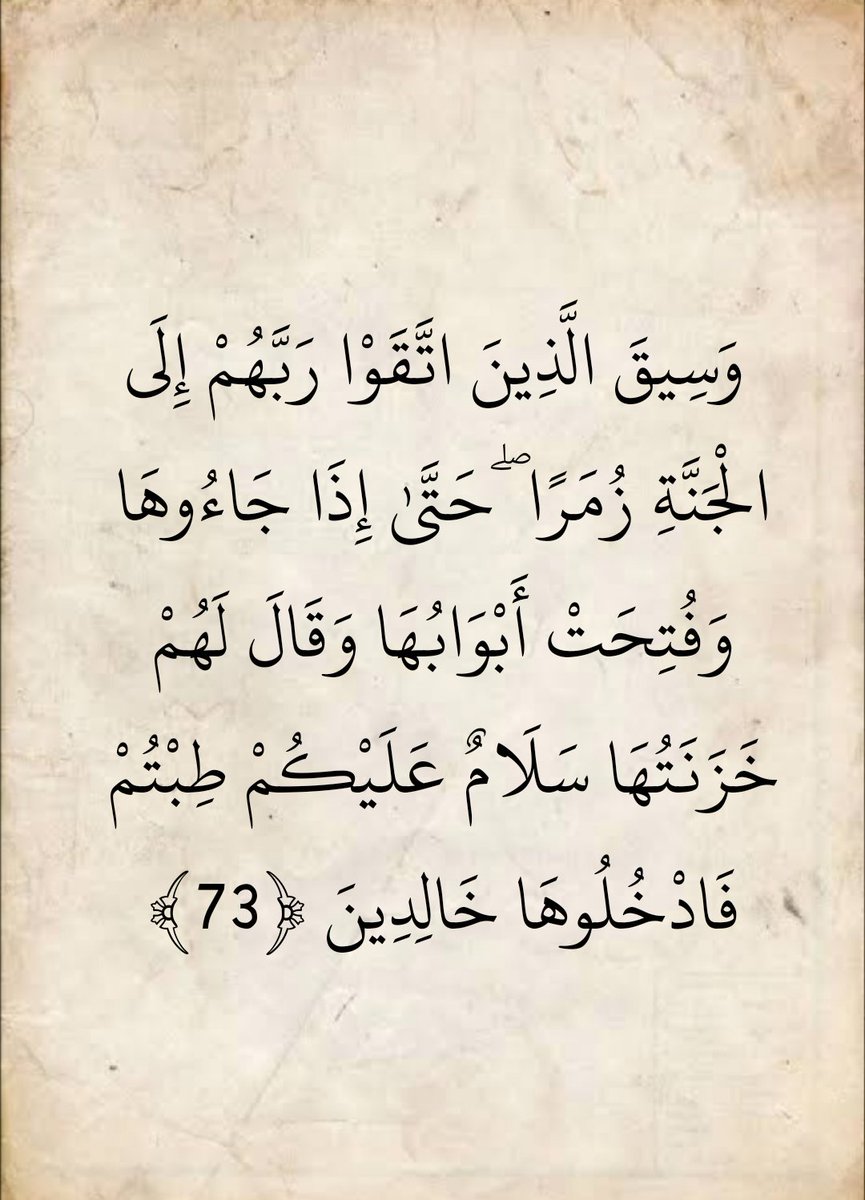 وَسِيقَ الَّذِينَ اتَّقَوْا رَبَّهُمْ إِلَى
الْجَنَّةِ زُمَرًا ۖ حَتَّىٰ إِذَا جَاءُوهَا
وَفُتِحَتْ أَبْوَابُهَا وَقَالَ لَهُمْ
خَزَنَتُهَا سَلَامٌ عَلَيْكُمْ طِبْتُمْ
فَادْخُلُوهَا خَالِدِينَ ﴿73﴾